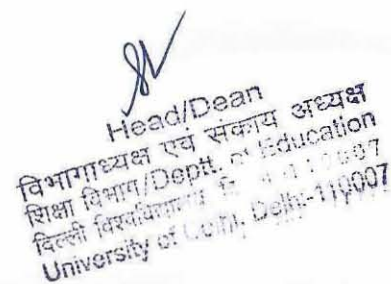 Head/Dean
विभागाध्यक्ष एवं संकाय अध्यक्ष
शिक्षा विभाग/Deptt. of Education
दिल्ली विश्वविद्यालय
University of Delhi, Delhi-110007